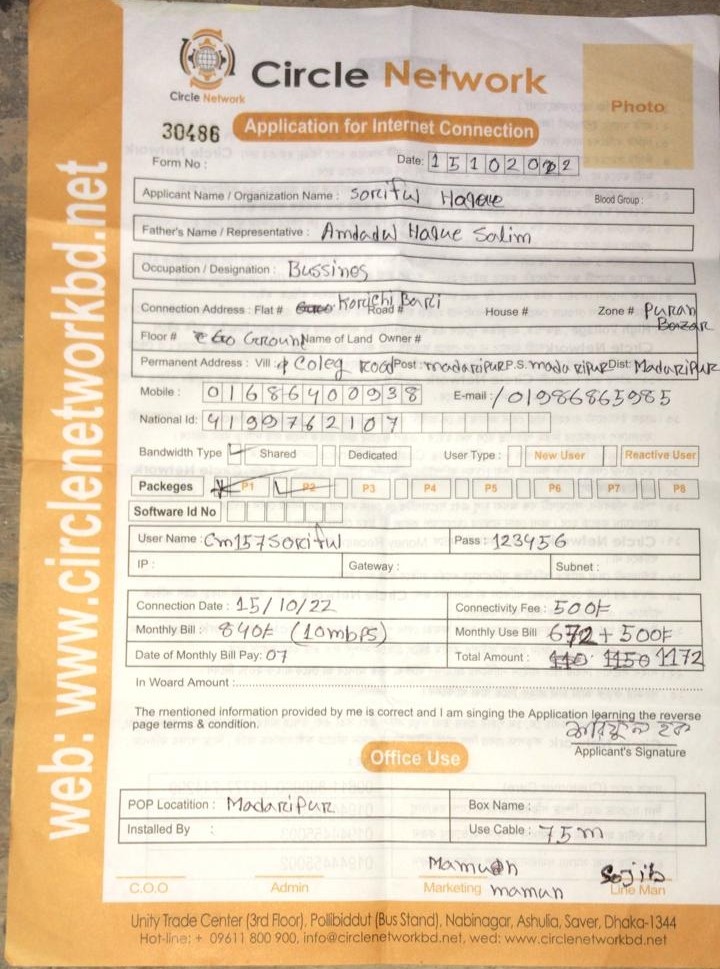 Circle Network
Circle Network
Photo
30486
Application for Internet Connection
Form No :
Date: 15102022
Applicant Name / Organization Name : Soriful Haque Blood Group :
Father's Name / Representative : Amdadul Haque Salim
Occupation / Designation : Bussines
Connection Address : Flat # Korichi Bari Road # House # Zone # Puran Bazar
Floor # Groun Name of Land Owner #
Permanent Address : Vill : Coleg Road Post : madaripur P.S. madaripur Dist: Madaripur
Mobile : 01686400938 E-mail : / 01986865985
National Id: 4199762107
Bandwidth Type Shared Dedicated User Type : New User Reactive User
Packeges P1 P2 P3 P4 P5 P6 P7 P8
Software Id No
User Name : Cm157Soriful Pass : 123456
IP : Gateway : Subnet :
Connection Date : 15/10/22 Connectivity Fee : 500/=
Monthly Bill : 840/= (10mbps) Monthly Use Bill 672 + 500/=
Date of Monthly Bill Pay: 07 Total Amount : 1150 1172
In Woard Amount :
The mentioned information provided by me is correct and I am singing the Application learning the reverse
page terms & condition.
Applicant's Signature
Office Use
POP Locatition : Madaripur Box Name :
Installed By : Use Cable : 75m
C.O.O Admin Marketing maman Sojib Line Man
Unity Trade Center (3rd Floor), Pollibiddut (Bus Stand), Nabinagar, Ashulia, Saver, Dhaka-1344
Hot-line: + 09611 800 900, info@circlenetworkbd.net, wed: www.circlenetworkbd.net
web: www.circlenetworkbd.net